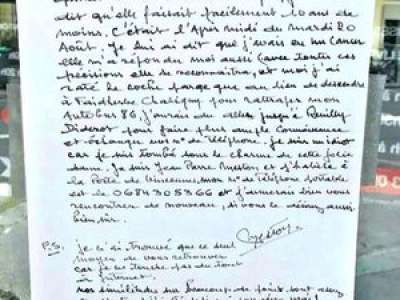 dit qu'elle faisait facilement 10 ans de
moins. C'était l'Après midi du mardi 20
Août. Je lui ai dit que j'avais eu un Cancer
elle m'a répondu moi aussi (avec toutes ces
précisions elle se reconnaitra, et moi j'ai
raté le coche parce que au lieu de descendre
à Faidherbe Chaligny pour rattraper mon
Autobus 86, j'aurais du aller jusqu'à Reuilly
Diderot pour faire plus ample Connaissance
et échanger nos n° de téléphone. Je suis
car je suis tombé sous le charme de cette jolie
dame. Je suis Jean Pierre et j'habite à
la Porte de Vincennes, mon n° de téléphone portable
est le 0684305366 et j'aimerais bien vous
rencontrer de nouveau, si vous le désirez aussi
bien sûr.
P.S. je n'ai trouvé que ce seul
moyen de vous retrouver
car je ne touche pas du tout
à internet.
nos similitudes sur beaucoup de points sont